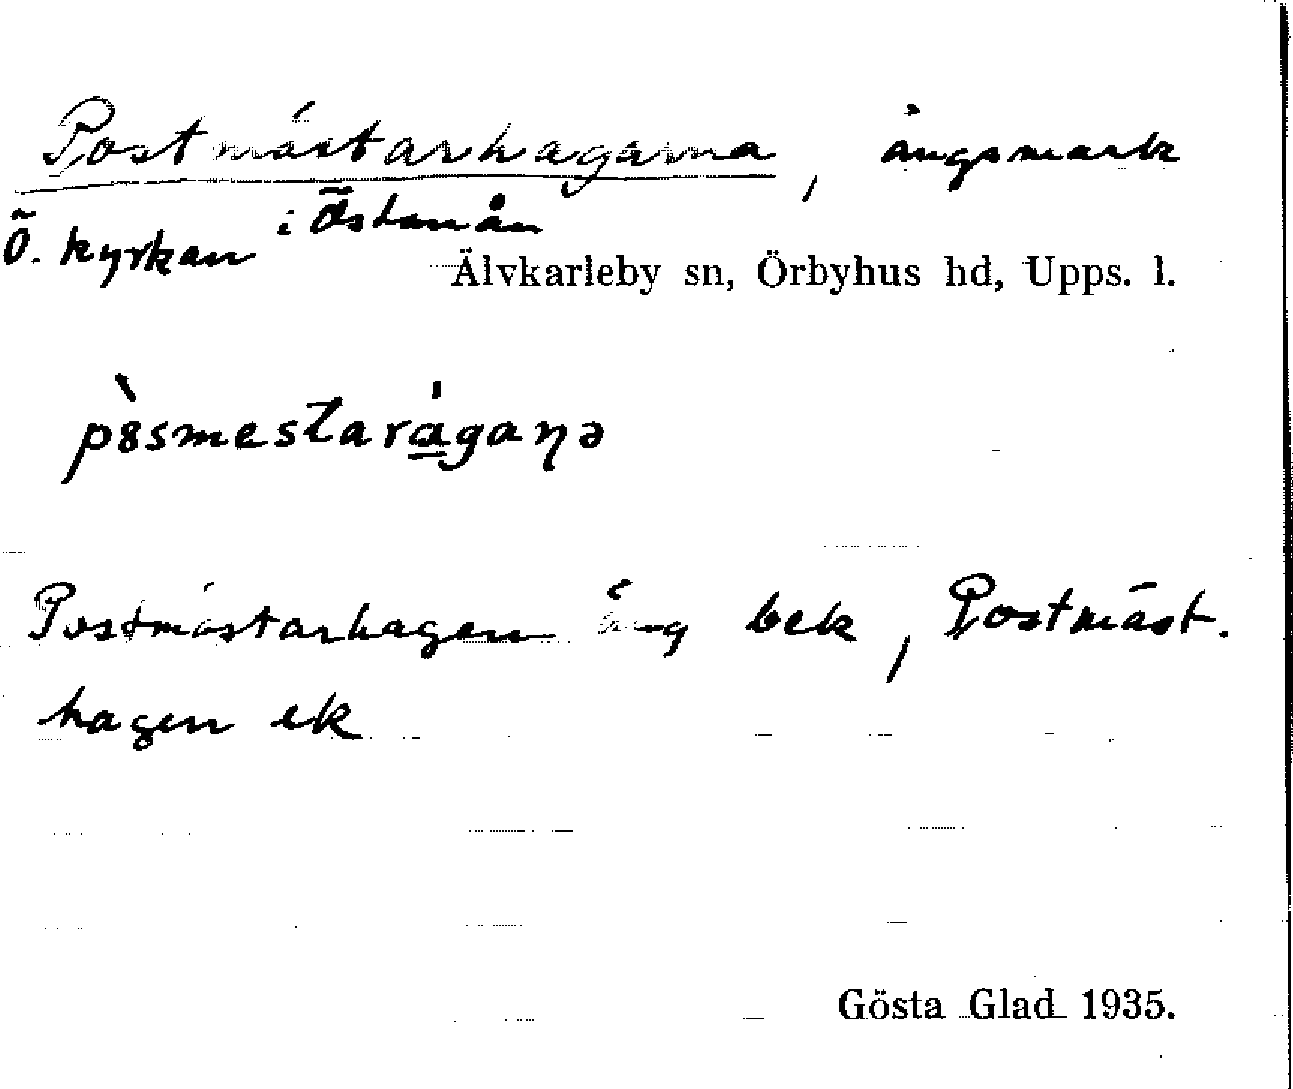 Postmästarhagarna, ängsmark
Ö. kyrkan i Östanån
Älvkarleby sn, Örbyhus hd, Upps. l.
pȍsmestarágaṇə
Postmästarhagen äng bek, Postmäst.
hagen ek
Gösta Glad 1935.